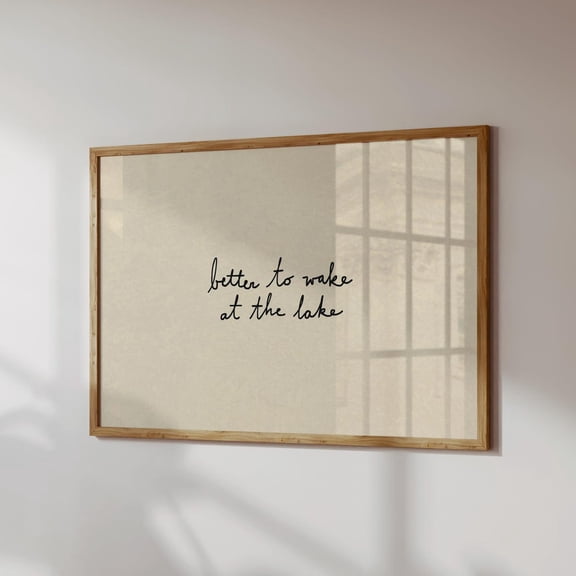 better to wake
at the lake